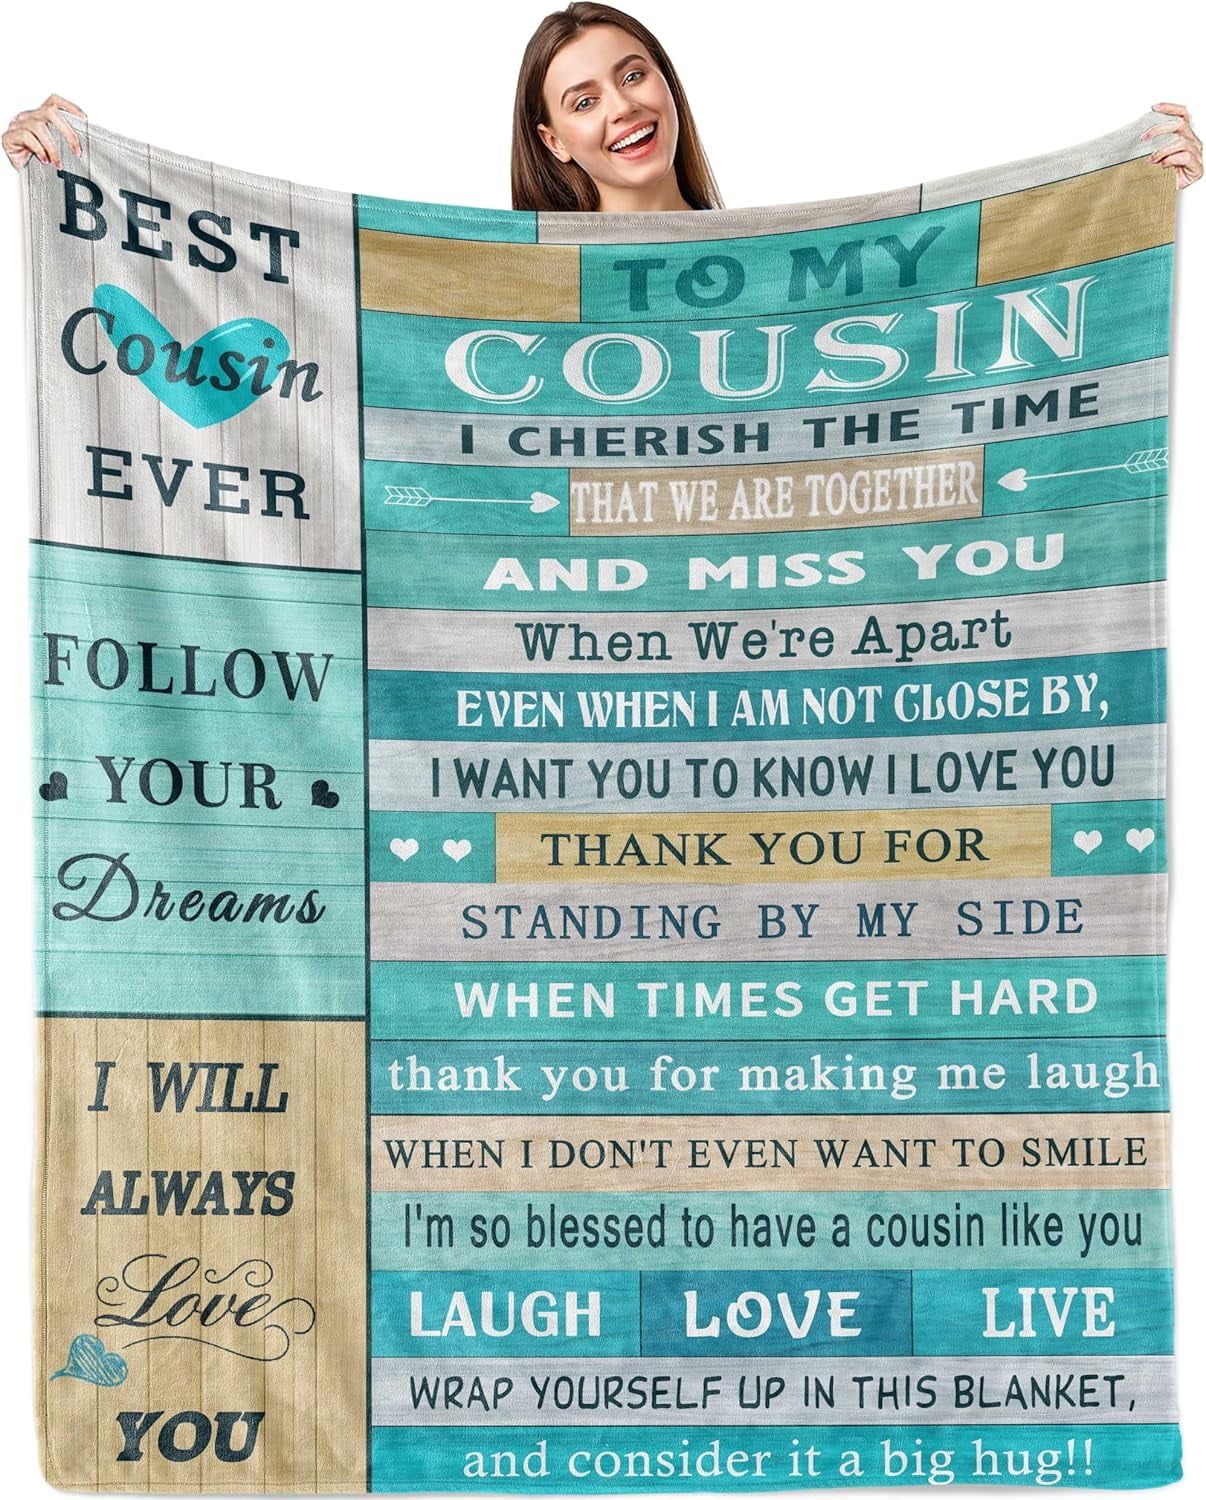 BEST
Cousin
EVER
FOLLOW
YOUR
Dreams
I WILL
ALWAYS
Love
YOU
TO MY
COUSIN
I CHERISH THE TIME
THAT WE ARE TOGETHER
AND MISS YOU
When We're Apart
EVEN WHEN I AM NOT CLOSE BY,
I WANT YOU TO KNOW I LOVE YOU
THANK YOU FOR
STANDING BY MY SIDE
WHEN TIMES GET HARD
thank you for making me laugh
WHEN I DON'T EVEN WANT TO SMILE
I'm so blessed to have a cousin like you
LAUGH LOVE LIVE
WRAP YOURSELF UP IN THIS BLANKET,
and consider it a big hug!!